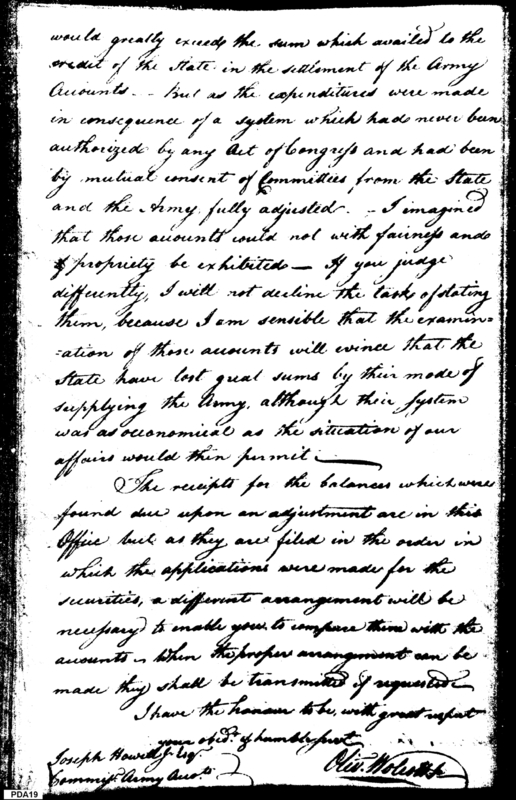 would greatly exceed the sum which availed to the
credit of the State in the settlement of the Army
Accounts. - But as the expenditures were made
in consequence of a system which had never been
authorized by any Act of Congress and had been
by mutual consent of Committees from the State
and the Army fully adjusted. - I imagined
that those accounts could not with fairness and
propriety be exhibited — If you judge
differently, I will not decline the task of stating
them, because I am sensible that the examin=
=ation of those accounts will evince that the
State have lost great sums by their mode of
supplying the Army, although their system
was as oeconomical as the situation of our
affairs would then permit. —
The receipts for the balances which were
found due upon an adjustment are in this
Office but as they are filed in the order in
which the applications were made for the
securities, a different arrangement will be
necessary to enable you to compare them with the
accounts - When the proper arrangement can be
made they shall be transmitted if requested.
I have the honour to be, with great respect
your obedt. & humble servt
Joseph Howell Jr. Esqr.
Commisr. Army Accots.
Olivr. Wolcott Jr.
PDA19